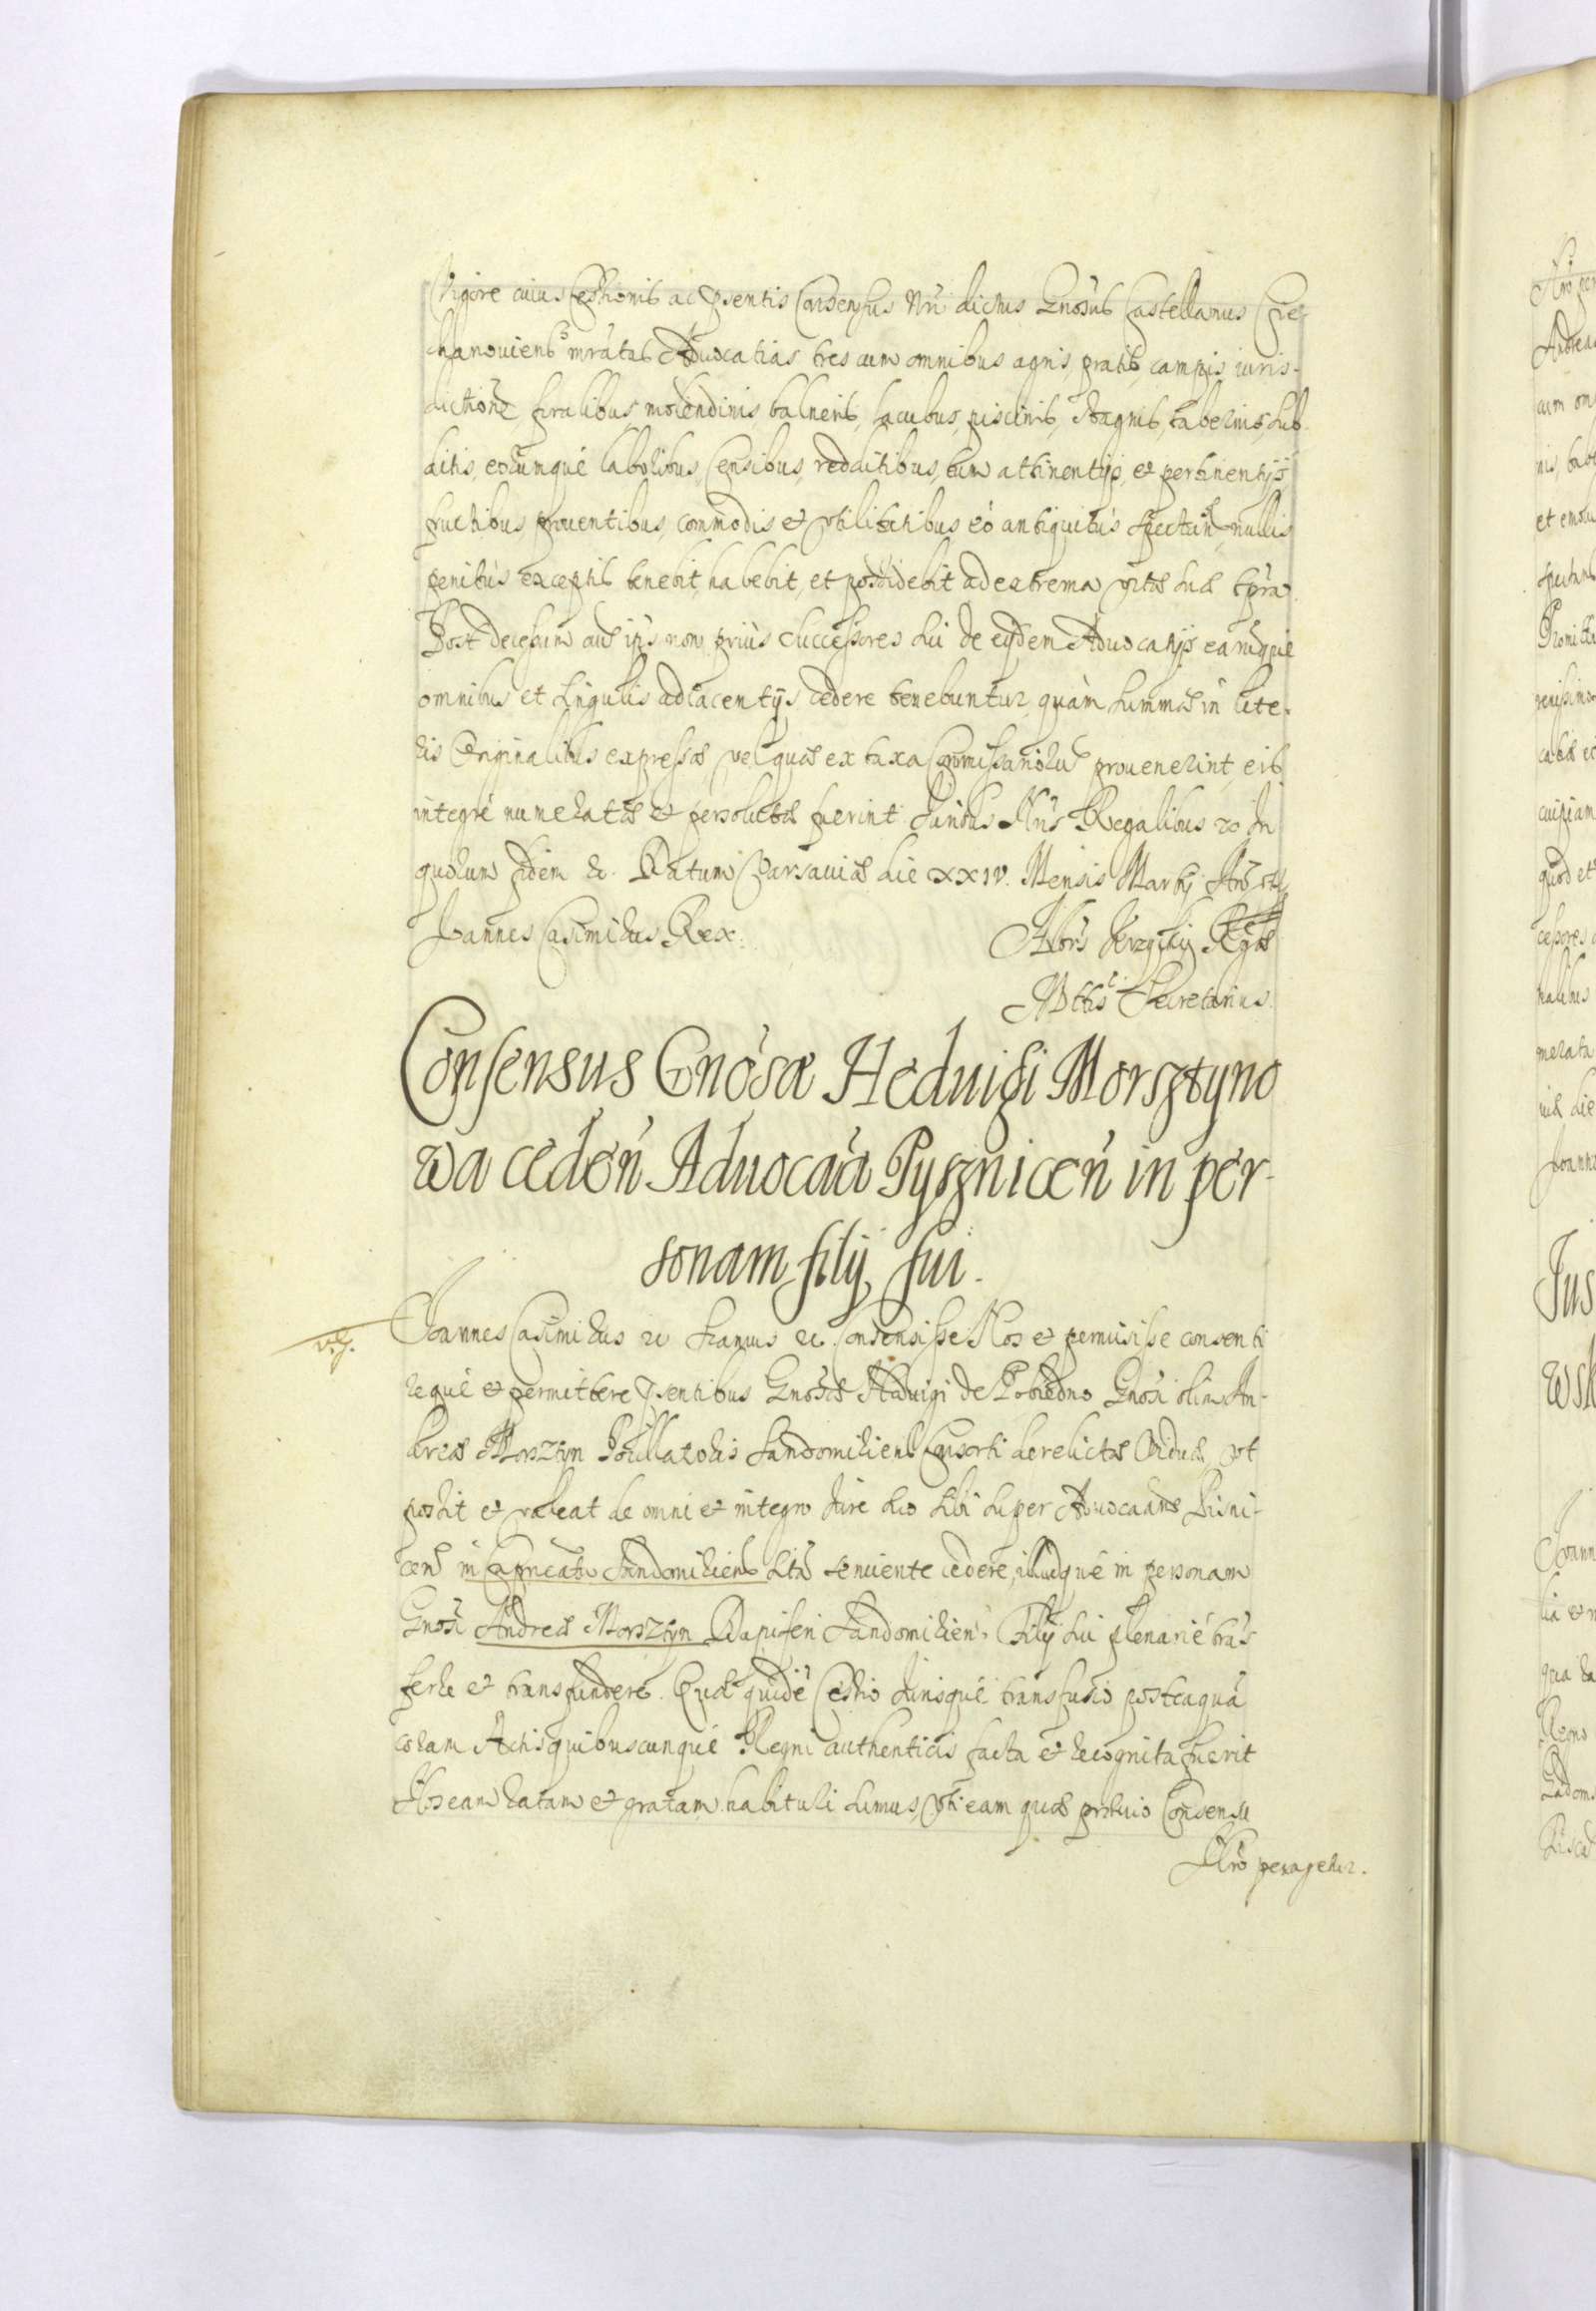 Vigore cuius Cessionis ac pñtentis Consensus Nr̃i dictus Gnõsus Castellanus Cie-
chanouiens̃ mrãtas Aduocatias tres cum omnibus agris, pratis, campis, iuris-
dictione, siralibus, molendinis, balneis, lacubus, piscinis, stagnis, tabernis, sub
ditis, eorumqué laboribus, Censibus, redditibus, tum attinentijs, et pertinentijs
fructibus, prouentibus, commodis et vtilitatibus eò antiquitùs spectañ, nullis
penitùs exceptis tenebit, habebit, et possidebit ad extrema vitæ suæ tp̃ra.
Post decessum aut̃ ip̃s non priùs Successores sui de eiisdem Aduocatijs earumqué
omnibus et singulis adiacentijs cedere tenebuntur, quàm summæ in lite-
ris Originalibus expressæ, vel quæ ex taxa Com̃issariorum prouenerint, eis
integrè numeratæ et persolutæ fuerint. Iuribus Nr̃is Regalibus &c In
quorum fidem &c. Datum Varsauiæ die XXIV. Mensis Martij Anõ
Joannes Casimirus Rex.
Krzycki Regiæ
Mttis Secretarius.
Consensus Gnõsæ Heduigi Morsztyno
wa cedeñ Aduocãa Pyszniceñ in per-
sonam filij sui.
Joannes Casimirus &c Significamus &c. Consensisse Nos et permisisse consenti
requé et permittere pñtentibus Gnõsæ Hedwigi de Pobiedno Gnõsi olim An-
dreæ Morsztyn Pocillatoris Sandomiriens̃ Consorti derelictæ Viduæ, vt
possit et valeat de omni et integro Iure suo sibi super Aduocatiam Pisni-
cens̃ in Capitaneatu Sandomiriens̃ sitã seruiente cedere, illudqué in personam
Gnõsi Andreæ Morsztyn Dapiferi Sandomirien̄. Filij sui plenariè trãs
ferre et transfundere. Quæ quidẽ Cessio Iurisqué transfusio posteaquã
coram Actis quibuscunqué Regni authenticis facta et recognita fuerit
Nos eam ratam et gratam habituri sumus, vti eam quæ præuio Consensu
Nr̃o peragetur.